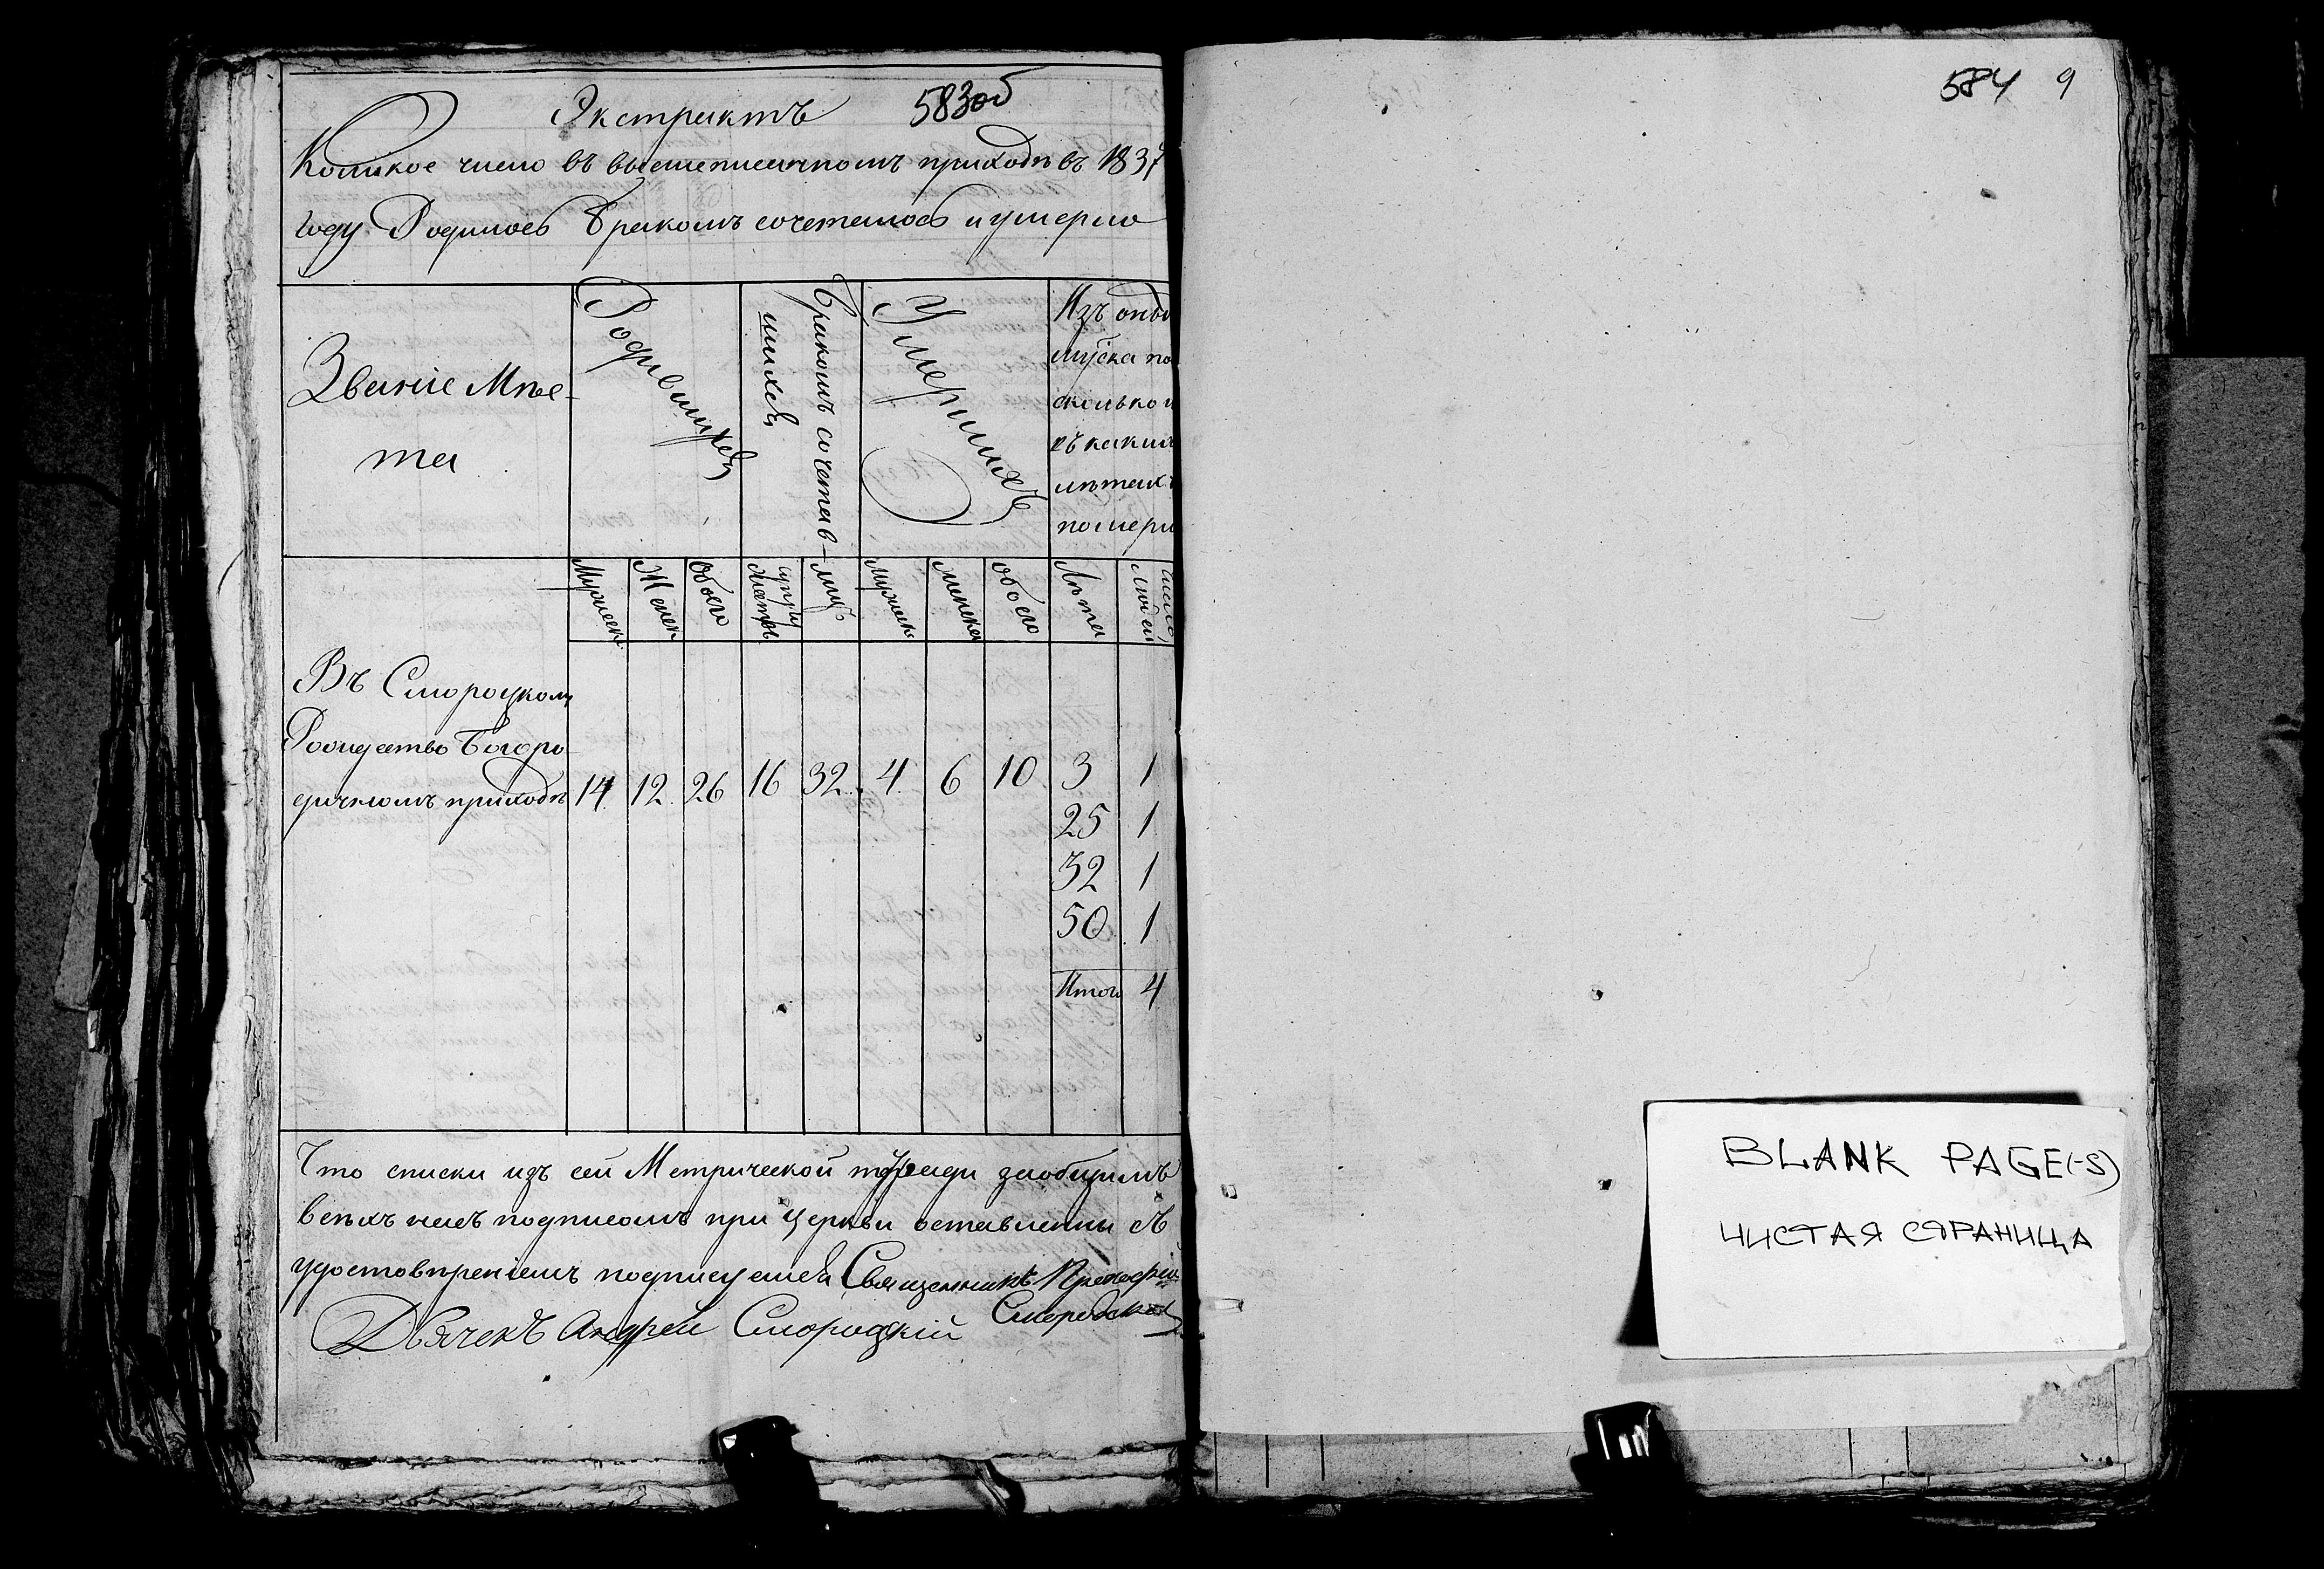 Экстрактъ 583об
Коликое число въ вышеписанномъ приходѣ въ 1837
году Родилось бракомъ сочеталось и умерло
Званіе Мѣс-
та
Родившихся
Бракомъ сочетав-
шихся
Умершихъ
Изъ оныхъ
муска по
сколько и
въ какихъ
лѣтахъ
помери
Мужеск
Женск
Обоего
супру
лиц
мужеск
женска
обоего
Лѣта
число
людей
Въ Смороцкомъ
Рождество Богоро-
дичномъ приходѣ 14 12 26 16 32 4 6 10 3 1
25 1
32 1
50 1
Итого 4
Что списки изъ сей Метрической тетради заобщимъ
всѣхъ насъ подписомъ при церкви оставлены въ
удостовѣреніемъ подписуемся Священникъ
Дьячекъ Андрей Смородскій
584 9
BLANK PAGE(-S)
ЧИСТАЯ СТРАНИЦА